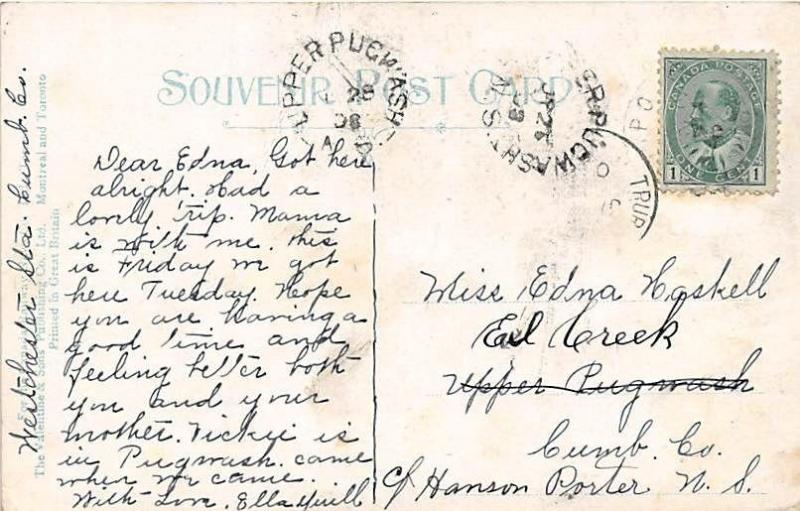 SOUVENIR POST CARD
UPPER PUGWASH
28
08
N.S.
CANADA POSTAGE
ONE CENT
1 1
Dear Edna, Got here
alright. Had a
lovely trip. Mama
is with me. this
is Friday we got
here Tuesday. Hope
you are having a
good time and
feeling better both
you and your
mother. Vickii is
in Pugwash. came
when we came.
With Love, Ella
Westchester Sta. Cumb. Co.
The Valentine & Sons Publishing Co., Ltd., Montreal and Toronto
Printed in Great Britain
Miss Edna Haskell
Eel Creek
Upper Pugwash
Cumb. Co.
c/ Hanson Porter N. S.